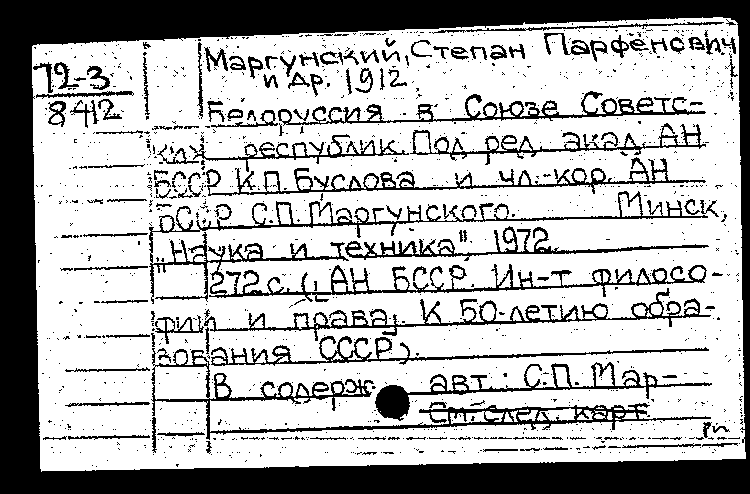 72-3
8412
Маргунский, Степан Парфенович
и др. 1912
Белоруссия в Союзе Советс-
ких республик. Под ред. акад. АН
БССР К.П. Буслова и чл.-кор. АН
БССР С.П. Маргунского. Минск,
„Наука и техника", 1972.
272 с. (АН БССР. Ин-т филосо-
фии и права. К 50-летию обра-
зования СССР).
В содерж. авт.: С.П. Мар-
См. след. карт.